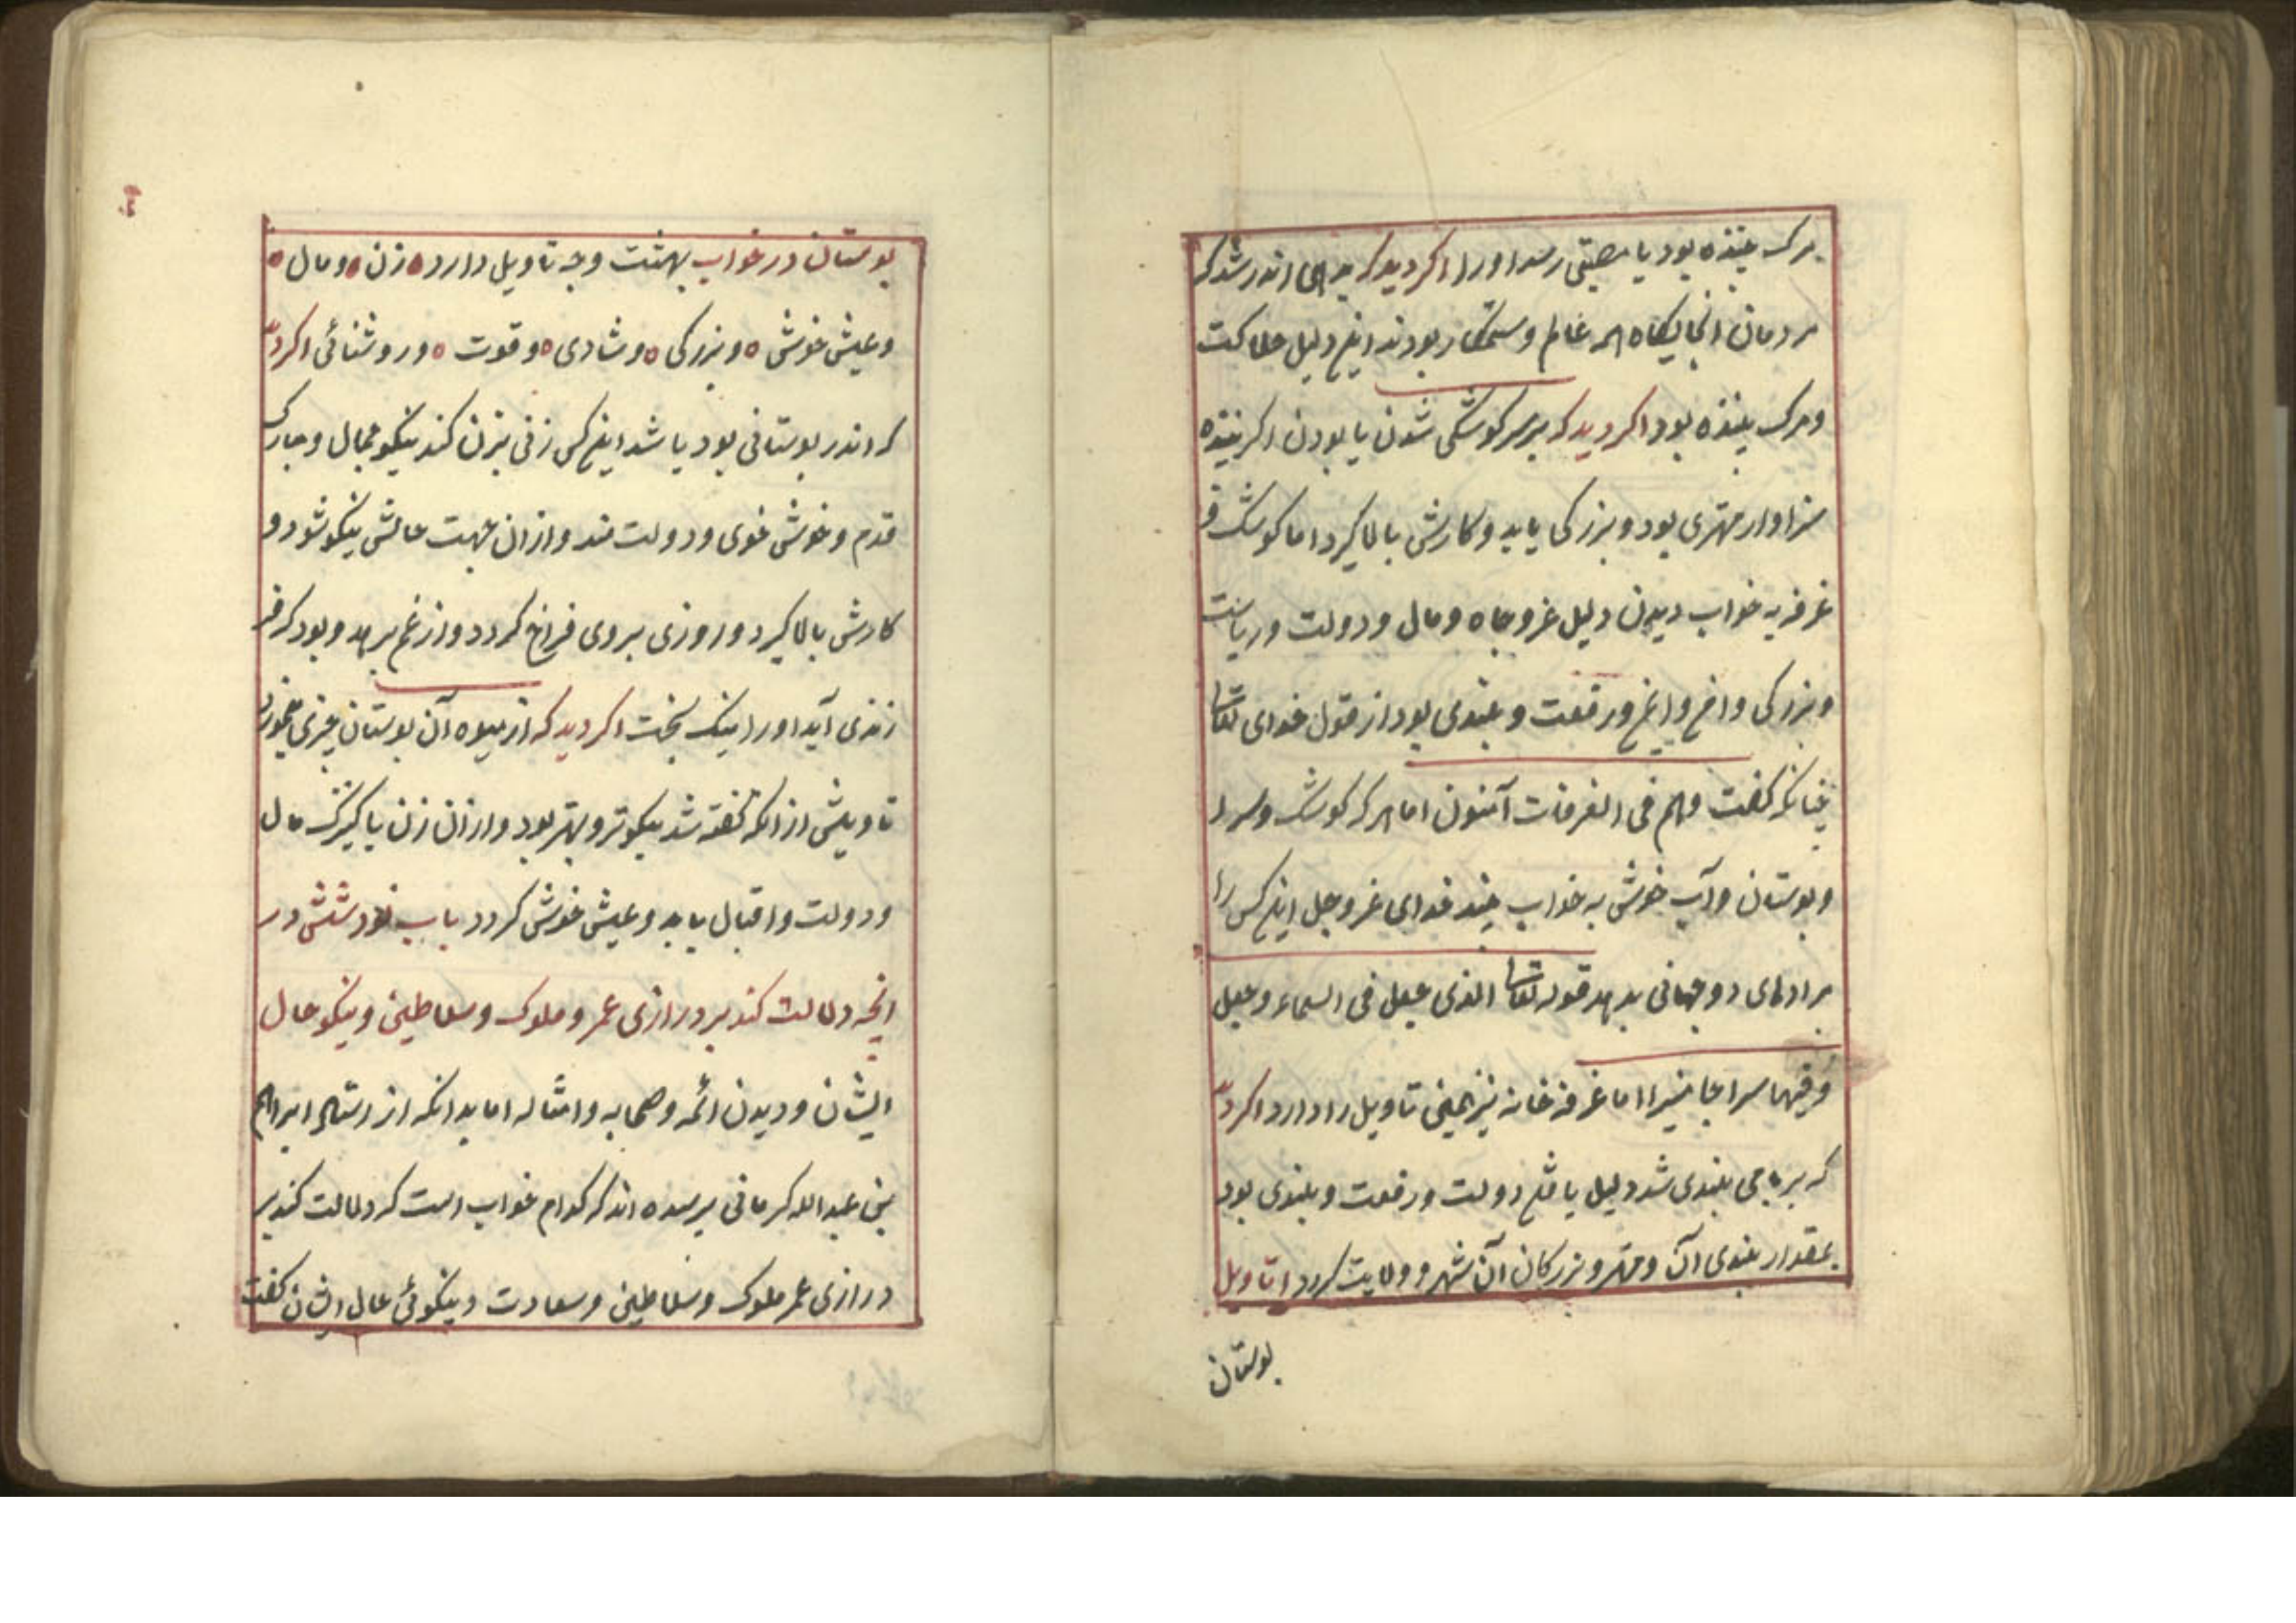 مرک بیننده بود یا مصیبتی رسد اورا اکر دید که بدیهی اندر شد که
مردمان انجایکاه همه ظالم وستمکار بودند اینهم دلیل هلاکت
ومرک بیننده بود اکر دید که بر سر کوشکی شدن یا بودن اکر بیننده
سزاوار مهتری بود و بزرکی یابد وکارش بالا کیرد اما کوشک و
غرفه به خواب دیدن دلیل عز وجاه ومال ودولت وریاست
وبزرکی و ورفعت وبلندی بود از قول خدای تعالی
چنانکه کفت وهم فی الغرفات آمنون اما هر که کوشک وسرا
وبوستان وآب خوش به خواب بیند خدای عز وجل اینکس را
مرادهای دوجهانی بدهد قوله تعالی الذی جعل فی السماء وجعل
وفیها سراجا منیرا اما غرفه خانه نیز همین تاویل را دارد اکر دید
که بر جای بلندی شد دلیل یافتن دولت ورفعت وبلندی بود
بمقدار بلندی آن ومهتر وبزرکان آن شهر وولایت کردد اما تاویل
بوستان
بوستان در خواب بهشت وجه تاویل دارد زن ومال
وعیش خوش وبزرکی وشادی وقوت وروشنائی اکر دید
که اندر بوستانی بود یا شد اینکس زنی بزن کند نیکو جمال ومبارک
قدم وخوش خوی ودولت مند وازان جهت حالش نیکو شود و
کارش بالا کیرد وروزی بروی فراخ کردد واز غم برهد وبود کر
زندی آید اورا نیک بخت اکر دید که از میوه آن بوستان چیزی میخورد
تاویلش از انکه کفته شد نیکوتر وبهتر بود وازان زن یا کنیزک مال
ودولت واقبال یابد وعیش خوش کردد باب نود ششم در
انچه دلالت کند بر درازی عمر وملوک وسلاطین ونیکو حال
ایشان ودیدن ائمه وصحابه وامثاله اما بدانکه از استاد ابراهیم
بن عبدالله کرمانی پرسیده اند که کدام خواب است که دلالت کند بر
درازی عمر ملوک وسلاطین وسعادت ونیکوئی حال ایشان کفت